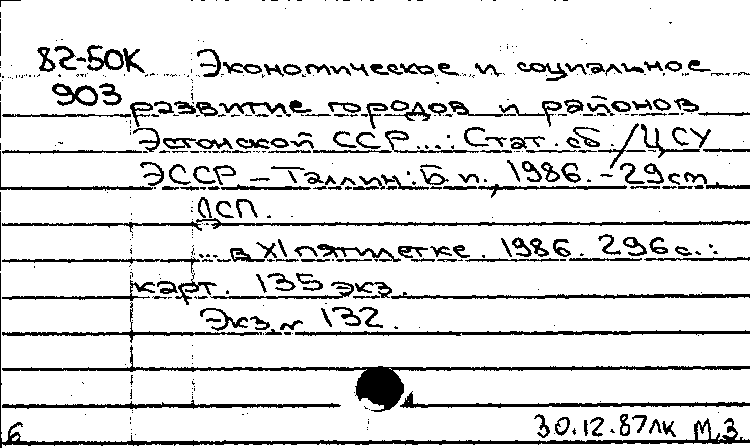 82-50К Экономическое и социальное
903 развитие городов и районов
Эстонской ССР...: Стат. сб. / ЦСУ
ЭССР. – Таллин: Б. и., 1986. – 29 см.
ДСП.
... в XI пятилетке. 1986. 296 с.:
карт. 135 экз.
Экз. № 132.
6 30.12.87 лк М.З.